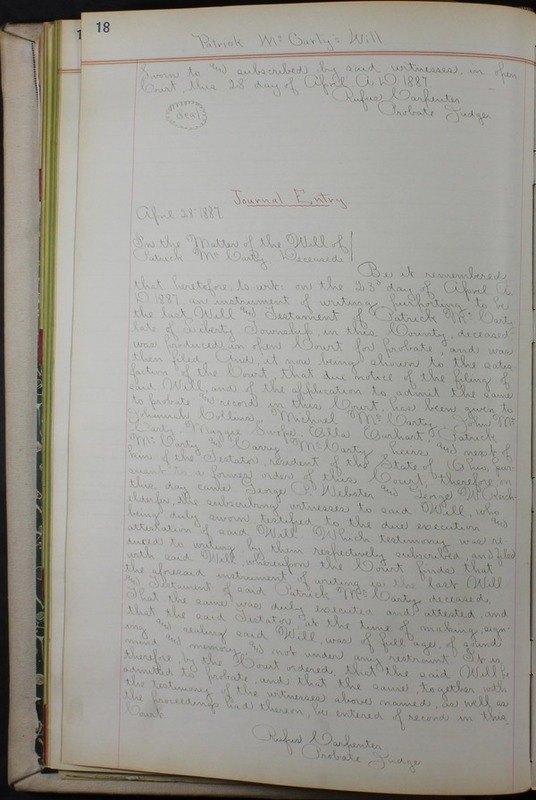 18
Patrick McCarty's Will
Sworn to and subscribed by said witnesses in open
Court, this 28 day of April A.D. 1887.
Rufus Carpenter
Probate Judge
Seal
Journal Entry
April 28 1887
In the Matter of the Will of
Patrick McCarty, Deceased
Be it remembered
that heretofore, to-wit: on the 23 day of April A.
D. 1887, an instrument of writing purporting to be
the last Will and Testament of Patrick McCarty
late of Liberty Township in this County, deceased
was produced in open Court for probate, and was
then filed. And it now being shown to the satis
faction of the Court that due notice of the filing of
said Will, and of the application to admit the same
to probate and record in this Court, has been given to
Collins, Michael McCarty, John Mc
Carty, Maggie Ella Patrick
McCarty and Carry McCarty heirs and next of
kin of the Testator, resident of the State of Ohio, pur
suant to a former order of this Court, Therefore, on
this day came George P. Webster and George W.
the subscribing witnesses to said Will, who
being duly sworn testified to the due execution and
attestation of said Will. Which testimony was re
duced to writing by them respectively subscribed, and filed
with said Will, whereupon the Court finds that
the aforesaid instrument of writing is the last Will
and Testament of said Patrick McCarty, deceased.
That the same was duly executed and attested, and
that the said Testator, at the time of making, sign-
ing and sealing said Will, was of full age, of sound
mind and memory, and not under any restraint. It is
therefore, by the Court ordered, that the said Will be
admitted to probate, and that the same, together with
the testimony of the witnesses above named, as well as
the proceedings had thereon, be entered of record in this
Court.
Rufus Carpenter
Probate Judge